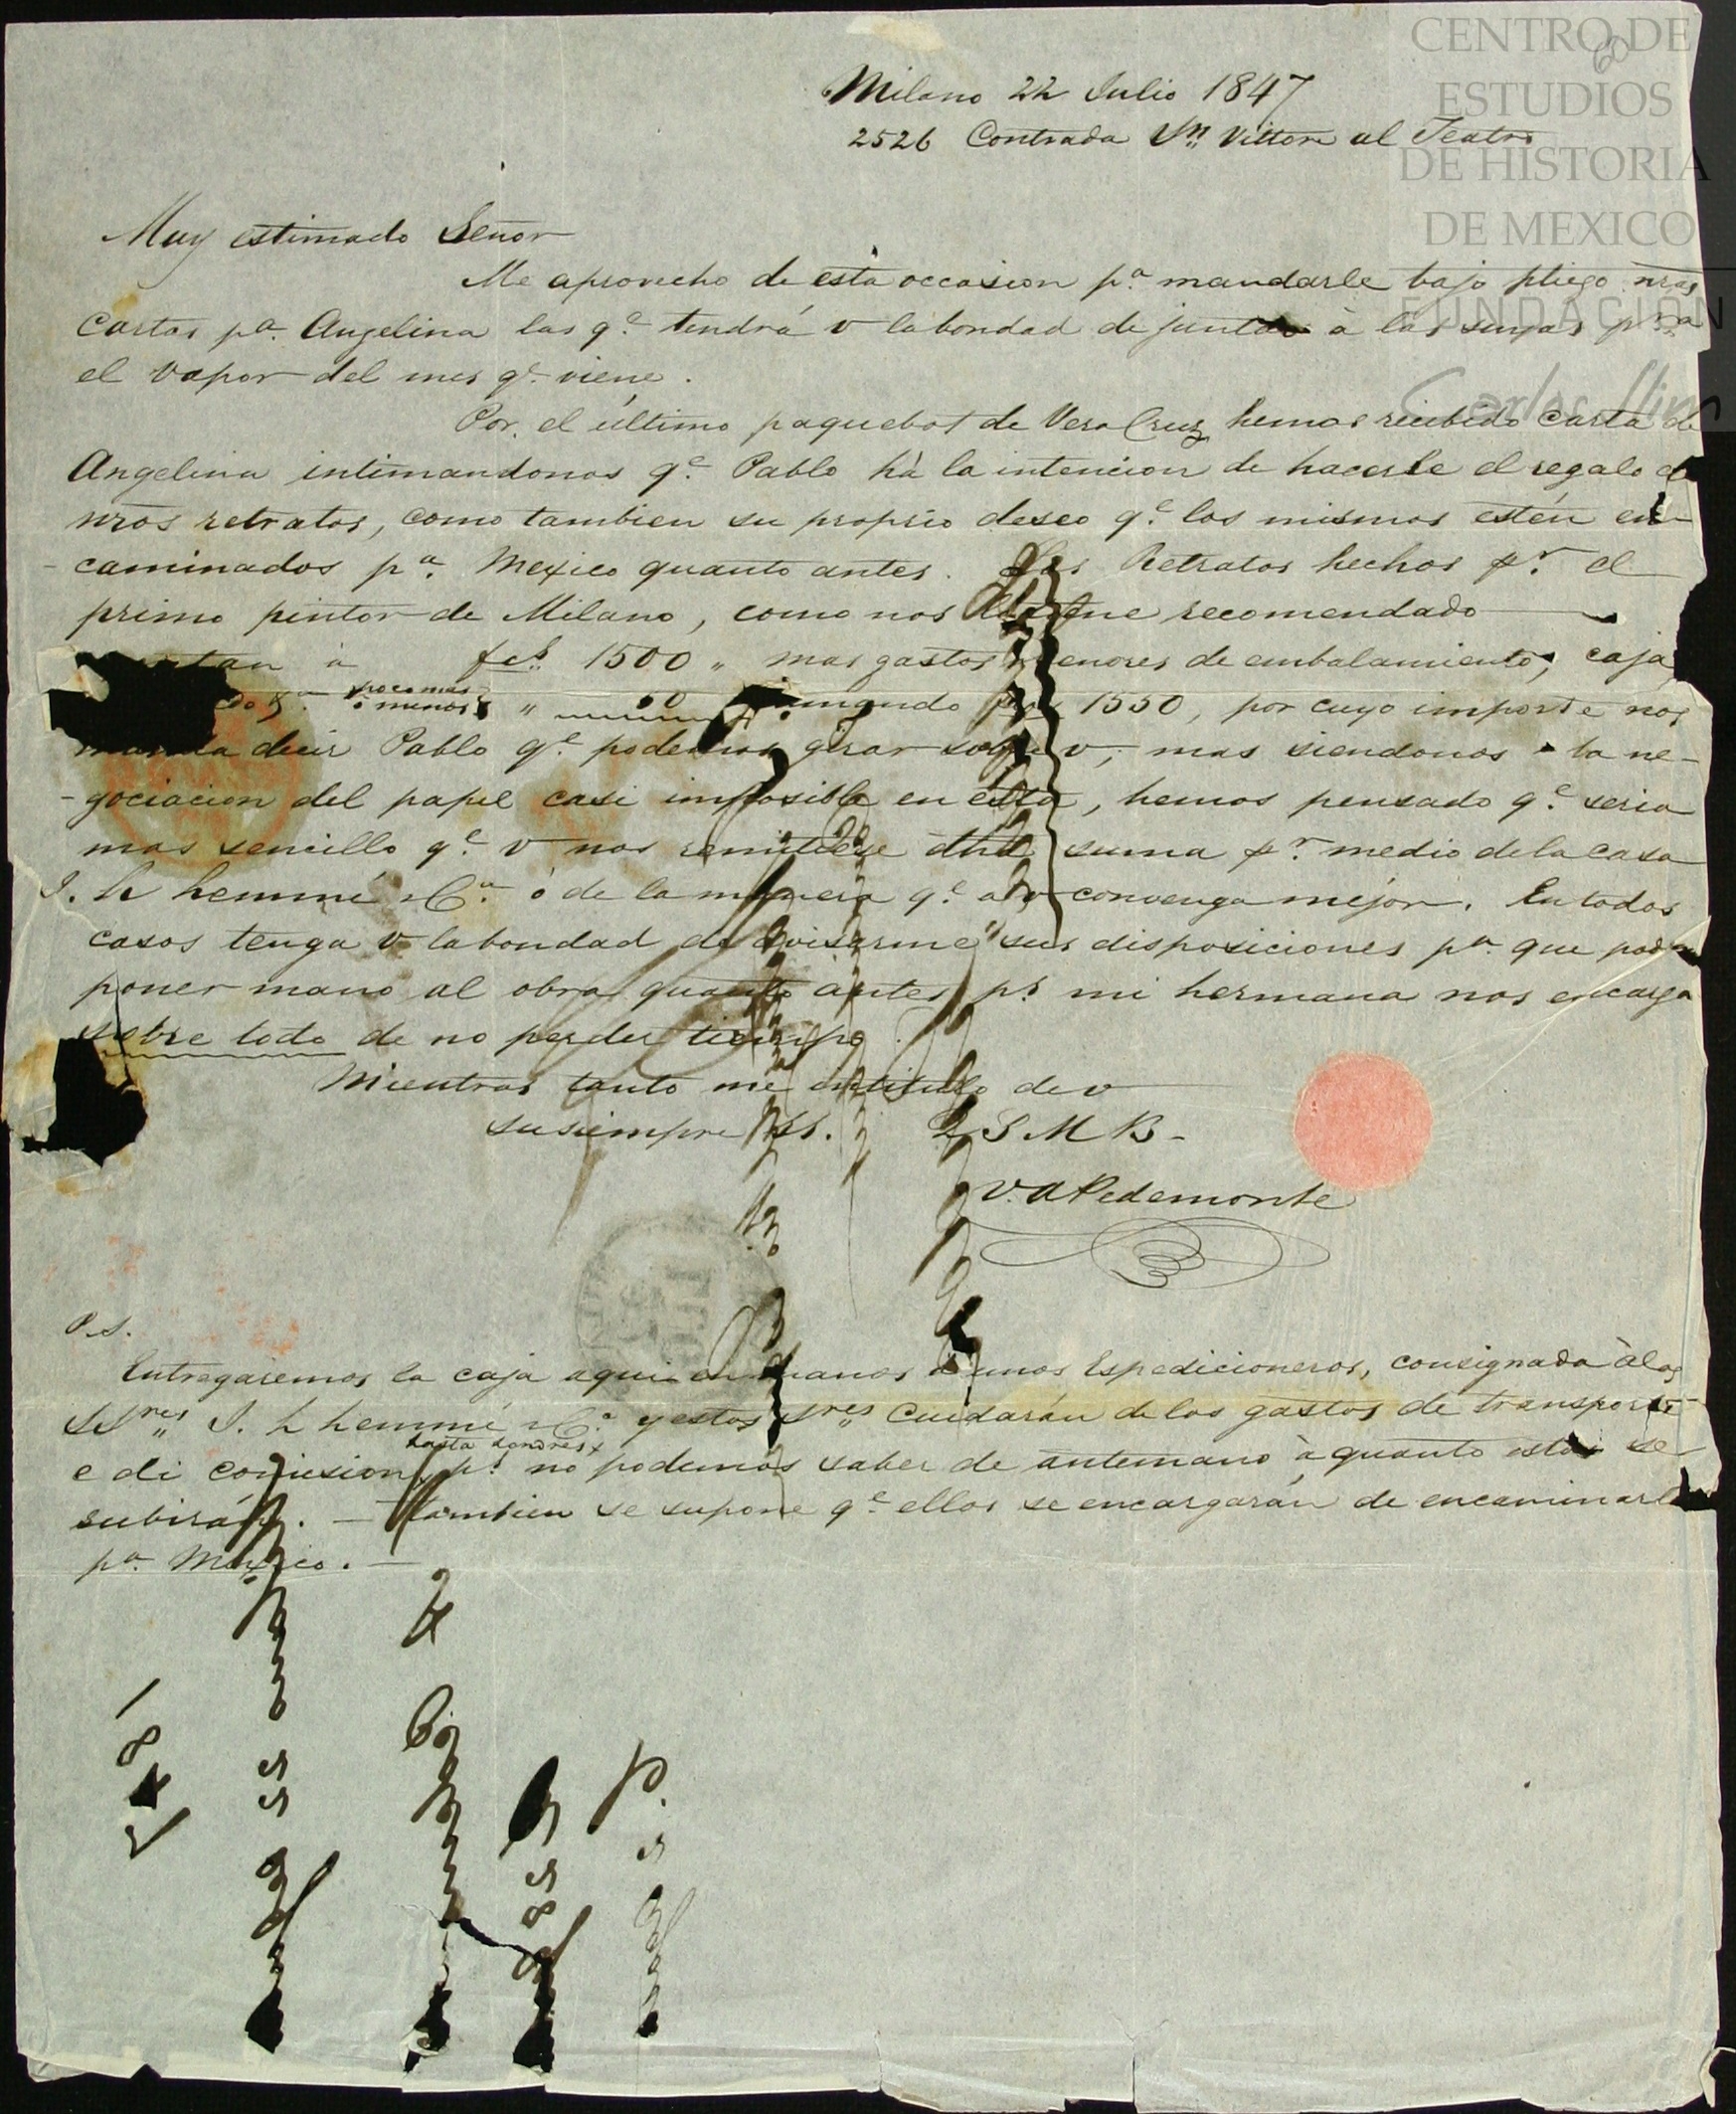 CENTRO DE
ESTUDIOS
DE HISTORIA
DE MEXICO
FUNDACIÓN
Carlos Slim
60
Milano 22 Julio 1847
2526 Contrada Sn Vittore al Teatro
Muy estimado Señor
Me aprovecho de esta occasion pa. mandarle bajo pliego nras
Cartas pa. Angelina las qe. tendrá v la bondad de juntar à las suyas pra
el vapor del mes qe. viene.
Por el último paquebot de Vera Cruz hemos recibido carta de
Angelina intimandonos qe. Pablo hà la intencion de hacerle el regalo de
nros retratos, como tambien su proprio deseo qe. los mismos estén en-
-caminados pa. Mexico quanto antes. Los Retratos hechos pr. el
primo pintor de Milano, como nos recomendado
à fcs. 1500 " mas gastos menores de embalamiento, caja,
poco mas
ò menos " 50 sumando 1550, por cuyo importe nos
manda decir Pablo qe. podemos girar sobre v, mas siendonos la ne-
-gociacion del papel casi imposible en esta, hemos pensado qe. seria
mas sencillo qe. v nos remitiese dha suma pr. medio de la casa
J. h hemmé & Ca. ó de la manera qe. a v convenga mejor. En todos
casos tenga v la bondad de avisarme sus disposiciones pa. que poda
poner mano al obra quanto antes, ps mi hermana nos encarga
sobre todo de no perder tiempo.
Mientras tanto me intitulo de v
su siempre SS. Q S M B-
V. A Pedemonte
P.S.
Entregaremos la caja aqui en manos de unos Espedicioneros, consignada à los
SSres J. h hemmé & Ca. y estos Sres Cuidarán de los gastos de transporte
hasta Londres
e di comision, ps. no podemos saber de antemano à quanto estos se
subirán. - tambien se supone qe. ellos se encargarán de encaminarla
pa. Mexico. -
1847